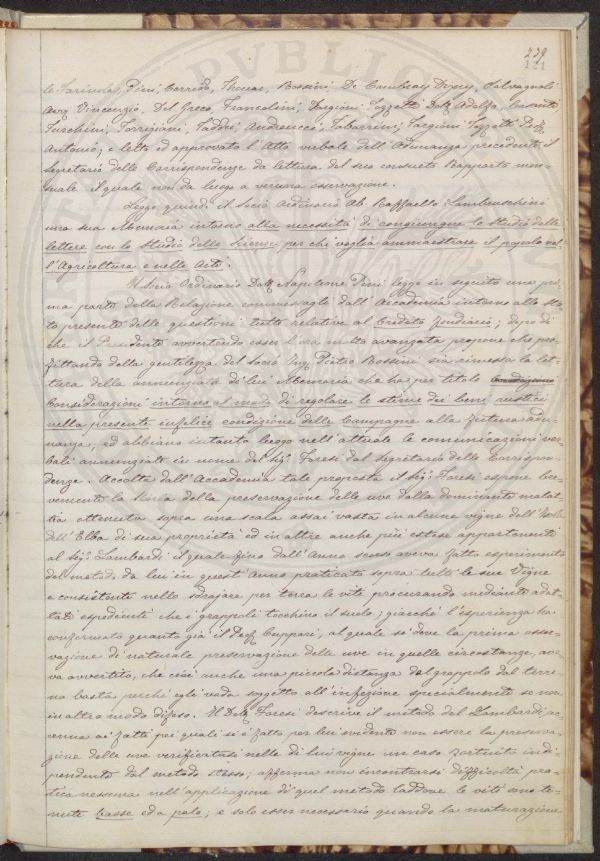 239
121
le Farinola, Pieri, Corrido, Thouar, Rossini, De Cambray Digny, Salvagnoli
Avv. Vincenzio, Del Greco, Francolini, Targioni Tozzetti Dott. Adolfo,
Luschini, Torrigiani, Taddei, Andreucci, Tabarrini, Targioni Tozzetti
Antonio; e letto ed approvato l'Atto verbale dell'Adunanza precedente il
Segretario delle Corrispondenze da lettura del suo consueto Rapporto men=
suale il quale non da luogo a veruna osservazione.
Legge quindi il Socio ordinario Ab. Raffaello Lambruschini
una sua Memoria intorno alla necessità di congiungere lo Studio delle
lettere con lo Studio delle Scienze per chi voglia ammaestrare il popolo nel=
l'Agricoltura e nelle Arti.
Il Socio Ordinario Dott. Napoleone Pini legge in seguito una pri=
ma parte della Relazione commessagli dall'Accademia intorno allo sta=
to presente delle questioni tutte relative al Credito fondiario; dopo di
che il Presidente avvertendo esser l'ora molto avanzata propone che pro=
fittando della gentilezza del Socio Ing. Pietro Rossini sia rimessa la let=
tura della annunziata di lui Memoria che ha per titolo
Considerazioni intorno al modo di regolare le stime dei beni rustici
nella presente infelice condizione delle Campagne alla futura adu=
nanza; ed abbiano intanto luogo nell'attuale le comunicazioni ver=
bali annunziate in nome del Sig. Foresi dal Segretario delle Corrispon=
denze. Accolta dall'Accademia tale proposta il Sig. Foresi espone bre=
vemente la storia della preservazione delle uve dalla dominante malat=
tia ottenuta sopra una scala assai vasta in alcune vigne dell'Isola
dell'Elba di sua proprietà ed in altre anche più estese appartenenti
al Sig. Lambardi il quale fino dall'Anno scorso aveva fatto esperimento
del metodo, da lui in quest'Anno praticato sopra tutte le sue Vigne
e consistente nello sdrajare per terra le viti procurando mediante adat=
tati espedienti che i grappoli tocchino il suolo; giacchè l'esperienza ha
confermato quanto già il Prof. Cuppari, al quale si deve la prima osser=
vazione di naturale preservazione delle uve in quelle circostanze, ave=
va avvertito, che cioè anche una piccola distanza del grappolo dal terre=
no basta perchè egli vada soggetto all'infezione specialmente se non
in altro modo difeso. Il Dott. Foresi descrive il metodo del Lambardi, ac=
cenna ai fatti pei quali si è fatto per lui evidente non essere la preserva=
zione delle uve verificatasi nelle di lui vigne un caso fortuito indi=
pendente dal metodo stesso; afferma non incontrarsi difficoltà pra=
tica nessuna nell'applicazione di quel metodo laddove le viti sono te=
nute basse ed a palo; e solo esser necessario quando la maturazione